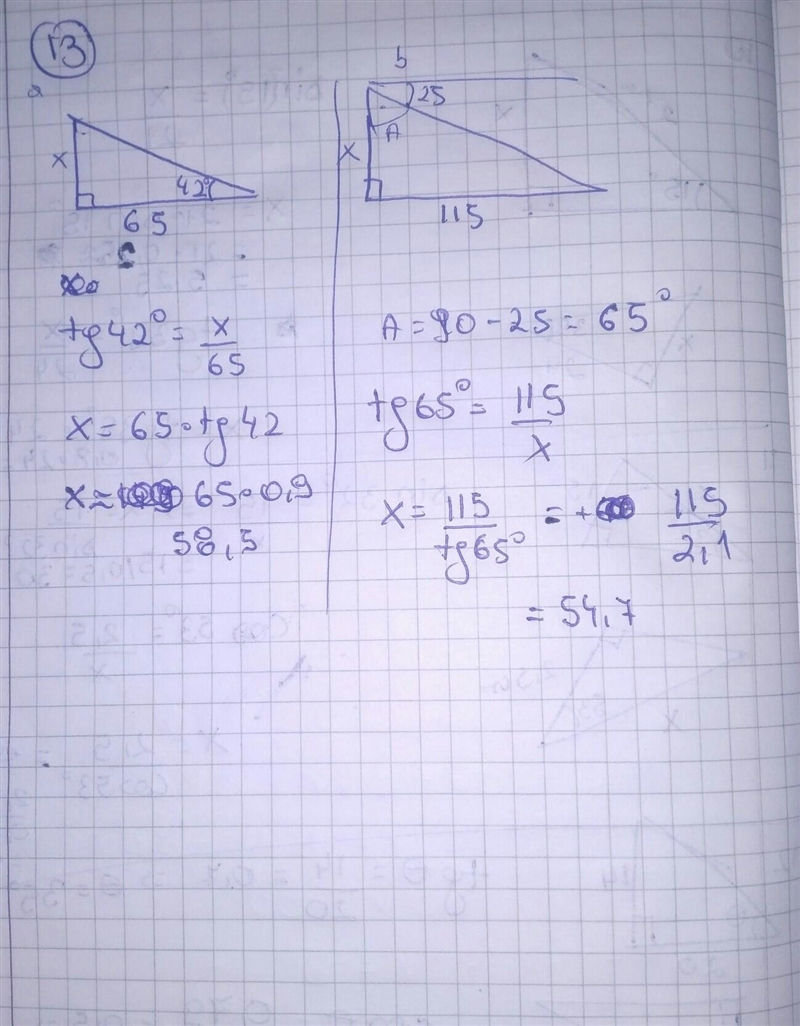 13
a
x
42°
65
tg42° = x/65
x = 65·tg42
x = 65·0,9
58,5
b
25
A
x
115
A = 90 - 25 = 65°
tg65° = 115/x
x = 115/tg65° = 115/2,1
= 54,7